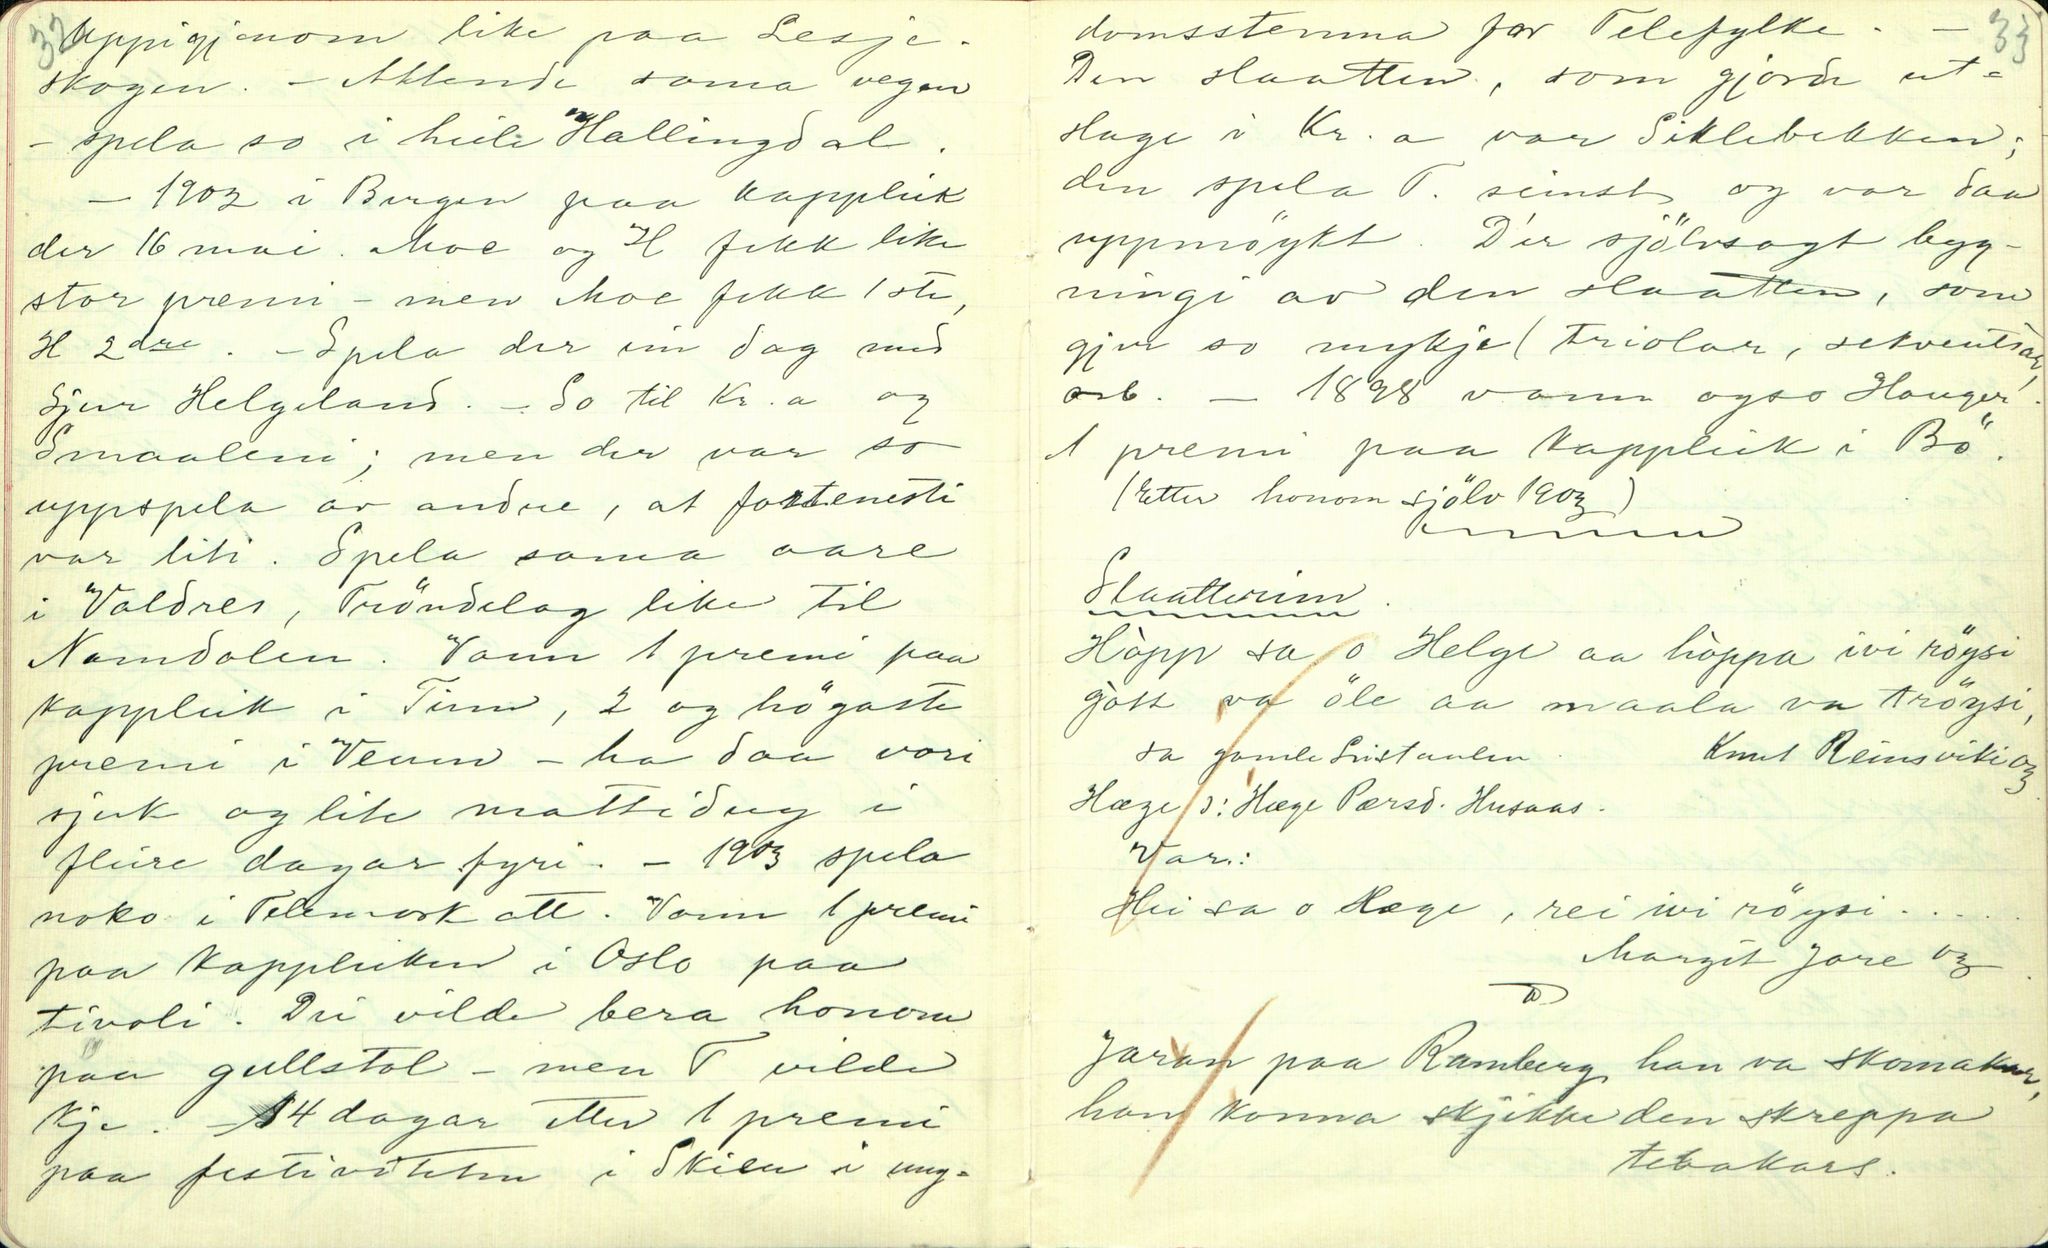 32
uppigjenom like paa Lesje-
skogen. - Attende sama vegen
- spela so i heile Hallingdal.
- 1902 i Bergen paa kappleik
der 16 mai. Moe og H fekk like
stor premi - men Moe fekk 1ste,
H 2dre. - Spela der ein dag med
Sjur Helgeland. - So til Kr.a og
Smaaleni; men der var so
uppspela av andre, at fortenesti
var liti. Spela sama aare
i Valdres, Tröndelag like til
Namdalen. Vann 1 premi paa
kappleik i Tinn, 2 og högaste
premi i Veum - ha daa vori
sjuk og lite mattidug i
fleire dagar fyri. - 1903 spela
noko i Telemark att. Vann 1 premi
paa kappleiken i Oslo paa
tivoli. Dei vilde bera honom
paa gullstol - men T vilde
kje. - 14 dagar etter 1 premi
paa festiviteten i Skien i ung-
33
domsstemna for Telefylke. -
Den slaatten, som gjorde ut-
slage i Kr.a var Siklebekken;
den spela T. seinst og var daa
uppmöykt. D'er sjölvsagt byg-
ningi av den slaatten, som
gjer so mykje (triolar, sekventsar,
osb. - 1898 vann ogso Hauger.
1 premi paa kappleik i Bö.
(Etter honom sjölv 1903)
Slaatterim.
Hòpp sa o Helge aa hòppa ivi röysi
gott va öle aa maala va tröysi,
sa gamle Sistaulen. Knut Reinsviki 03
Hæge ɔ: Hæge Pærsd. Husaas.
Var.:
Hei sa o Hæge, rei ivi röysi.....
Margit Jore 03
Jaran paa Ramberg han va skomakar,
han konna skjikke den skreppa
tebakars.